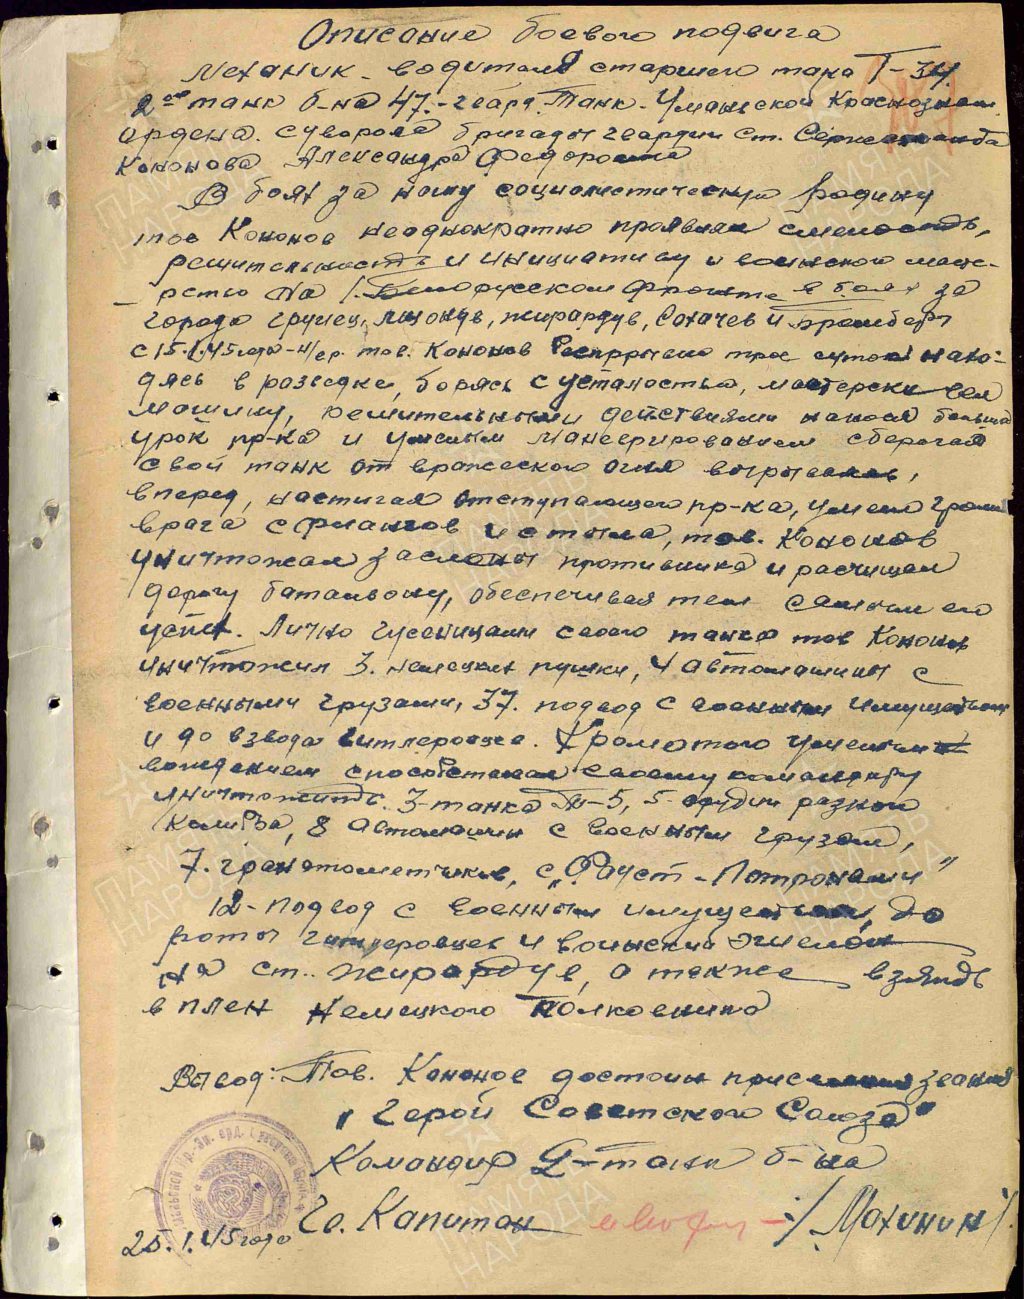 Описание боевого подвига
Механик-водителя старшего танка Т-34
2го танк б-на 47.-гвард. Танк. Уманской Краснознам.
ордена Суворова бригады гвардии ст. Сержанта
Кононова Александра Федоровича
В боях за нашу социалистическую родину
тов Кононов неоднократно проявлял смелость,
решительность и инициативу и воинского масте-
рство На 1. Белорусском фронте в боях за
города Груец, Жирардув, Сохачев и Бромберг
с 15.1.45 года тов. Кононов трое суток нахо-
дясь в разведке, борясь с усталостью, мастерски вел
машину, решительными действиями нанося большой
урон пр-ка и умелым маневрированием сберегая
свой танк от вражеского огня вырывался,
вперед, настигая отступающего пр-ка, умело громил
врага с флангов и с тыла, тов. Кононов
уничтожал заслоны противника и расчищал
дорогу батальону, обеспечивая тем самым его
успех. Лично гусеницами своего танка тов Кононов
уничтожил 3. немецких пушки, 4 автомашины с
военными грузами, 37. подвод с военным имуществом
и до взвода гитлеровцев. Грамотого умелым
вождением способствовал своему командиру
уничтожить 3-танка Т-5, 5-орудий разной
калибра, 8 автомашин с военным грузом,
7. гранатометчиков, с „Фауст-Потронами"
12-подвод с военным имуществом, до
роты гитлеровцев и воинский эшелон
на ст.. Жирардув, а также взять
в плен немецкого Полковника
Вывод: Тов. Кононов достоин присвоения звания
"Герой Советского Союза"
Командир 2-танк б-на
Гв. Капитан /Мохинин/.
25.1.45 года